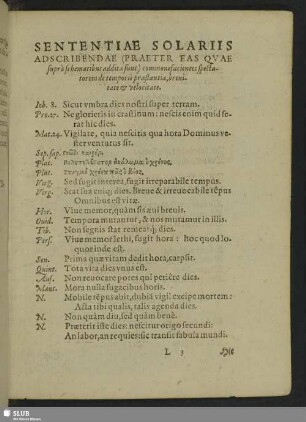 SENTENTIAE SOLARIIS
ADSCRIBENDAE (PRAETER EAS QVAE
suprà schematibus additæ sunt) commonefacientes specta-
torem de temporis præstantia, brevi-
tate & velocitate.
Iob. 8. Sicut vmbra dies nostri super terram.
Pro. 27. Ne glorieris in crastinum: nescis enim quid fe-
rat hic dies.
Mat. 24. Vigilate, quia nescitis qua hota Dominus ve-
ster venturus sit.
Plat.
Plut.
Virg. Sed fugit interea, fugit irreparabile tempus.
Virg. Stat sua cuiq; dies. Breue & irreuocabile tẽpus
Omnibus est vitæ.
Hor. Viue memor, quàm sis æui breuis.
Ouid. Tempora mutantur, & nos mutamur in illis.
Tib. Non segnis stat remeatq; dies.
Pers. Viue memor lethi, fugit hora: hoc quod lo-
quor inde est.
Sen. Prima quæ vitam dedit hora, carpsit.
Quint. Tota vita dies vnus est.
Aus. Non reuocare potes qui periêre dies.
Mant. Mora nulla fugacibus horis.
N. Mobile tẽpus abit, dubiâ vigil excipe mortem:
Asta tibi qualis, talis agenda dies.
N. Non quàm diu, sed quàm benè.
N. Præterit iste dies: nescitur origo secundi:
An labor, an requies: sic transit fabula mundi.
L 3 Hic
SLUB